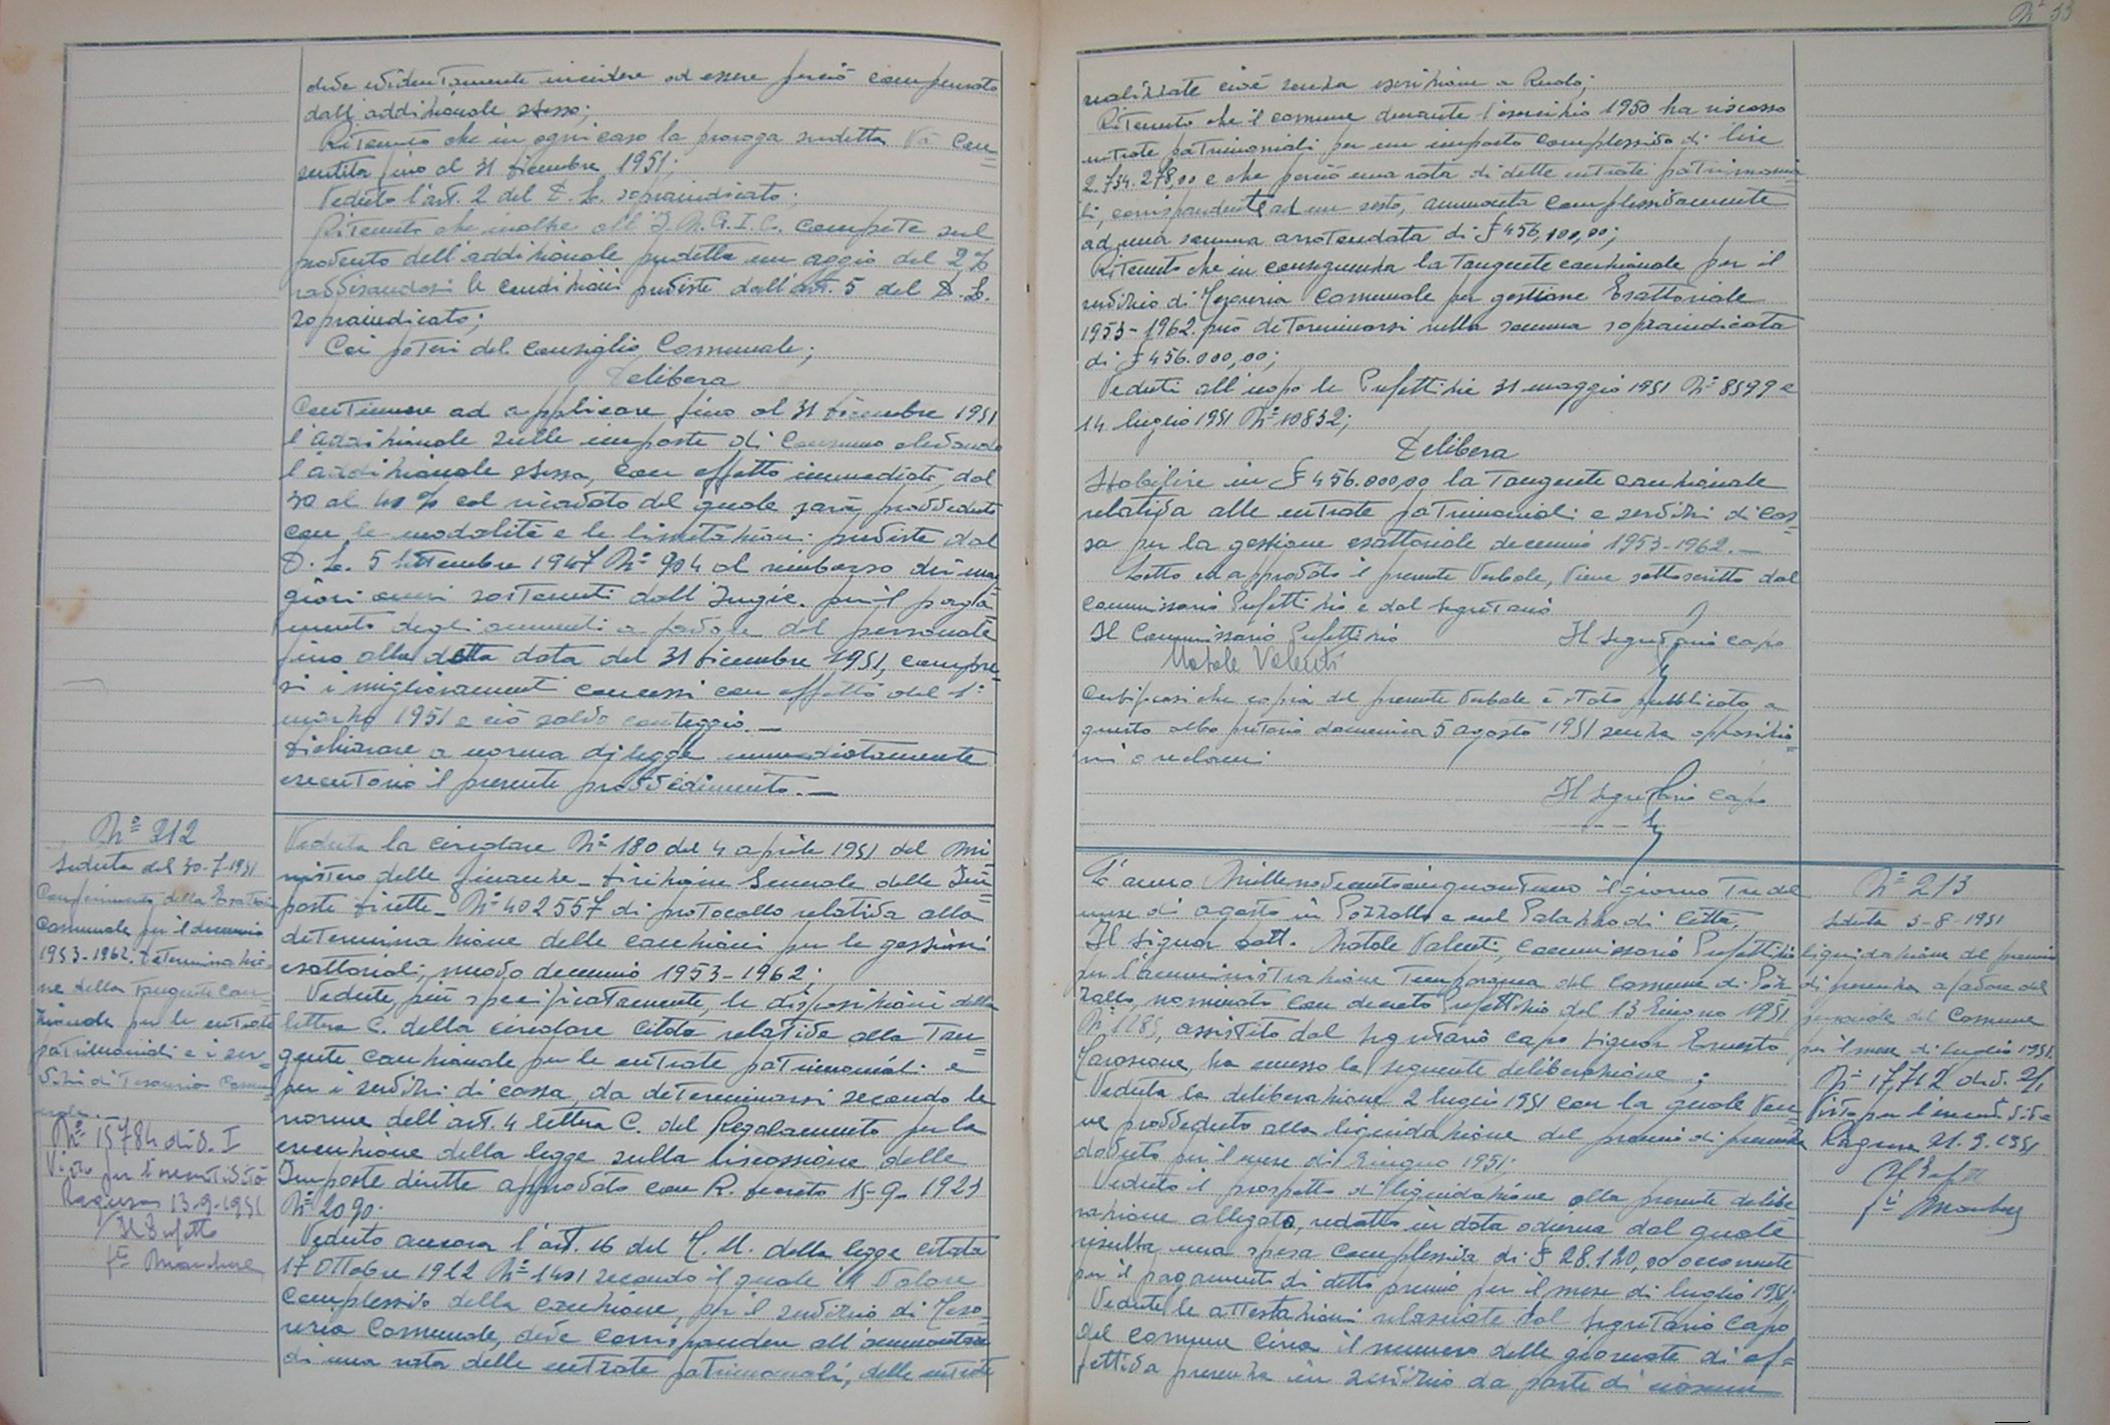 deve evidentemente incidere ad essere perciò compensato
dall'addizionale stessa;
Ritenuto che in ogni caso la proroga sudetta va con=
sentita fino al 31 dicembre 1951;
Veduto l'art. 2 del D. L. sopraindicato;
Ritenuto che inoltre all'I.N.G.I.C. compete sul
provento dell'addizionale predetta un aggio del 2%
ravvisandosi le condizioni previste dall'art. 5 del D. L.
sopraindicato;
Coi poteri del Consiglio Comunale;
Delibera
Continuare ad applicare fino al 31 dicembre 1951
l'addizionale sulle imposte di Consumo elevando
l'addizionale stessa, con effetto immediato, dal
30 al 40% col ricavato del quale sarà provveduto
con le modalità e le limitazioni previste dal
D. L. 5 settembre 1947 Nº 904 al rimborso dei mag=
giori oneri sostenuti dall'Ingic. per il paga=
mento degli aumenti a favore del personale
fino alla detta data del 31 dicembre 1951, compre=
si i miglioramenti concessi con effetto dal 1º
marzo 1951 e ciò salvo conteggio.—
Dichiarare a norma di legge immediatamente
esecutorio il presente provvedimento.—
Nº 212
Seduta del 30-7-1951
Conferimento della Esattoria
Comunale per il decennio
1953-1962. Determinazio=
ne della Tangente Cau=
zionale per le entrate
patrimoniali e i ser=
vizi di Tesoreria Comu=
nale.
Nº 15784 div. I
Visto per l'esecutività
Ragusa 13-9-1951
Il Prefetto
Veduta la circolare Nº 180 del 4 aprile 1951 del Mi=
nistero delle finanze - Direzione Generale delle Im=
poste Dirette - Nº 402557 di protocollo relativa alla
determinazione delle cauzioni per le gestioni
esattoriali, nuovo decennio 1953-1962;
Vedute, più specificatamente, le disposizioni della
lettera C. della circolare citata relative alla Tan=
gente cauzionale per le entrate patrimoniali e
per i servizi di cassa, da determinarsi secondo le
norme dell'art. 4 lettera C. del Regolamento per la
esecuzione della legge sulla riscossione delle
Imposte dirette approvato con R. Decreto 15-9-1923
Nº 2090.
Veduto ancora l'art. 16 del T. U. della legge citata
17 Ottobre 1922 Nº 1401 secondo il quale il valore
complessivo della cauzione, per il servizio di Teso=
reria Comunale, deve corrispondere all'ammontare
di una rata delle entrate patrimoniali, delle entrate
Nº 33
realizzate cioè senza iscrizione a Ruolo;
Ritenuto che il comune durante l'esercizio 1950 ha riscosso
entrate patrimoniali per un importo complessivo di lire
2.734.278,00 e che perciò una rata di dette entrate patrimonia=
li, corrispondente ad un sesto, ammonta complessivamente
ad una somma arrotondata di £ 456,100,00;
Ritenuto che in conseguenza la Tangente cauzionale per il
servizio di Tesoreria Comunale per gestione Esattoriale
1953-1962. può determinarsi nella somma sopraindicata
di £ 456.000,00;
Veduti all'uopo le Prefettizie 31 maggio 1951 Nº 8599 e
14 luglio 1951 Nº 10832;
Delibera
Stabilire in £ 456.000,00 la Tangente cauzionale
relativa alle entrate patrimoniali e servizi di cas=
sa per la gestione esattoriale decennio 1953-1962.—
Letto ed approvato il presente Verbale, viene sottoscritto dal
Commissario Prefettizio e dal Segretario
Il Commissario Prefettizio Il Segretario Capo
Natale Valenti
Certificasi che copia del presente Verbale è stata pubblicata a
questo albo pretorio domenica 5 agosto 1951 senza opposizio=
ni o reclami
Il Segretario Capo
L'anno Millenovecentocinquantuno il giorno Tre del
mese di agosto in Pozzallo e nel Palazzo di Città,
Il Signor Dott. Natale Valenti, Commissario Prefettizio
per l'amministrazione Temporanea del Comune di Poz=
zallo, nominato con decreto Prefettizio del 13 Giugno 1951
Nº 1285, assistito dal Segretario Capo Signor Ernesto
ha emesso la seguente deliberazione:
Veduta la deliberazione 2 luglio 1951 con la quale ven=
ne provveduto alla liquidazione del premio di presenza
dovuto per il mese di Giugno 1951;
Veduto il prospetto di liquidazione alla presente delibe=
razione allegato, redatto in data odierna dal quale
risulta una spesa complessiva di £ 28.120,00 occorrente
per il pagamento di detto premio per il mese di luglio 1951;
Vedute le attestazioni rilasciate dal Segretario Capo
del Comune circa il numero delle giornate di ef=
fettiva presenza in servizio da parte di ciascun
Nº 213
Seduta 3-8-1951
liquidazione del premio
di presenza a favore del
personale del Comune
per il mese di Luglio 1951.
Nº 17,712 div. 2/1
Visto per l'esecutività
Ragusa 21.9.1951
Il Prefetto